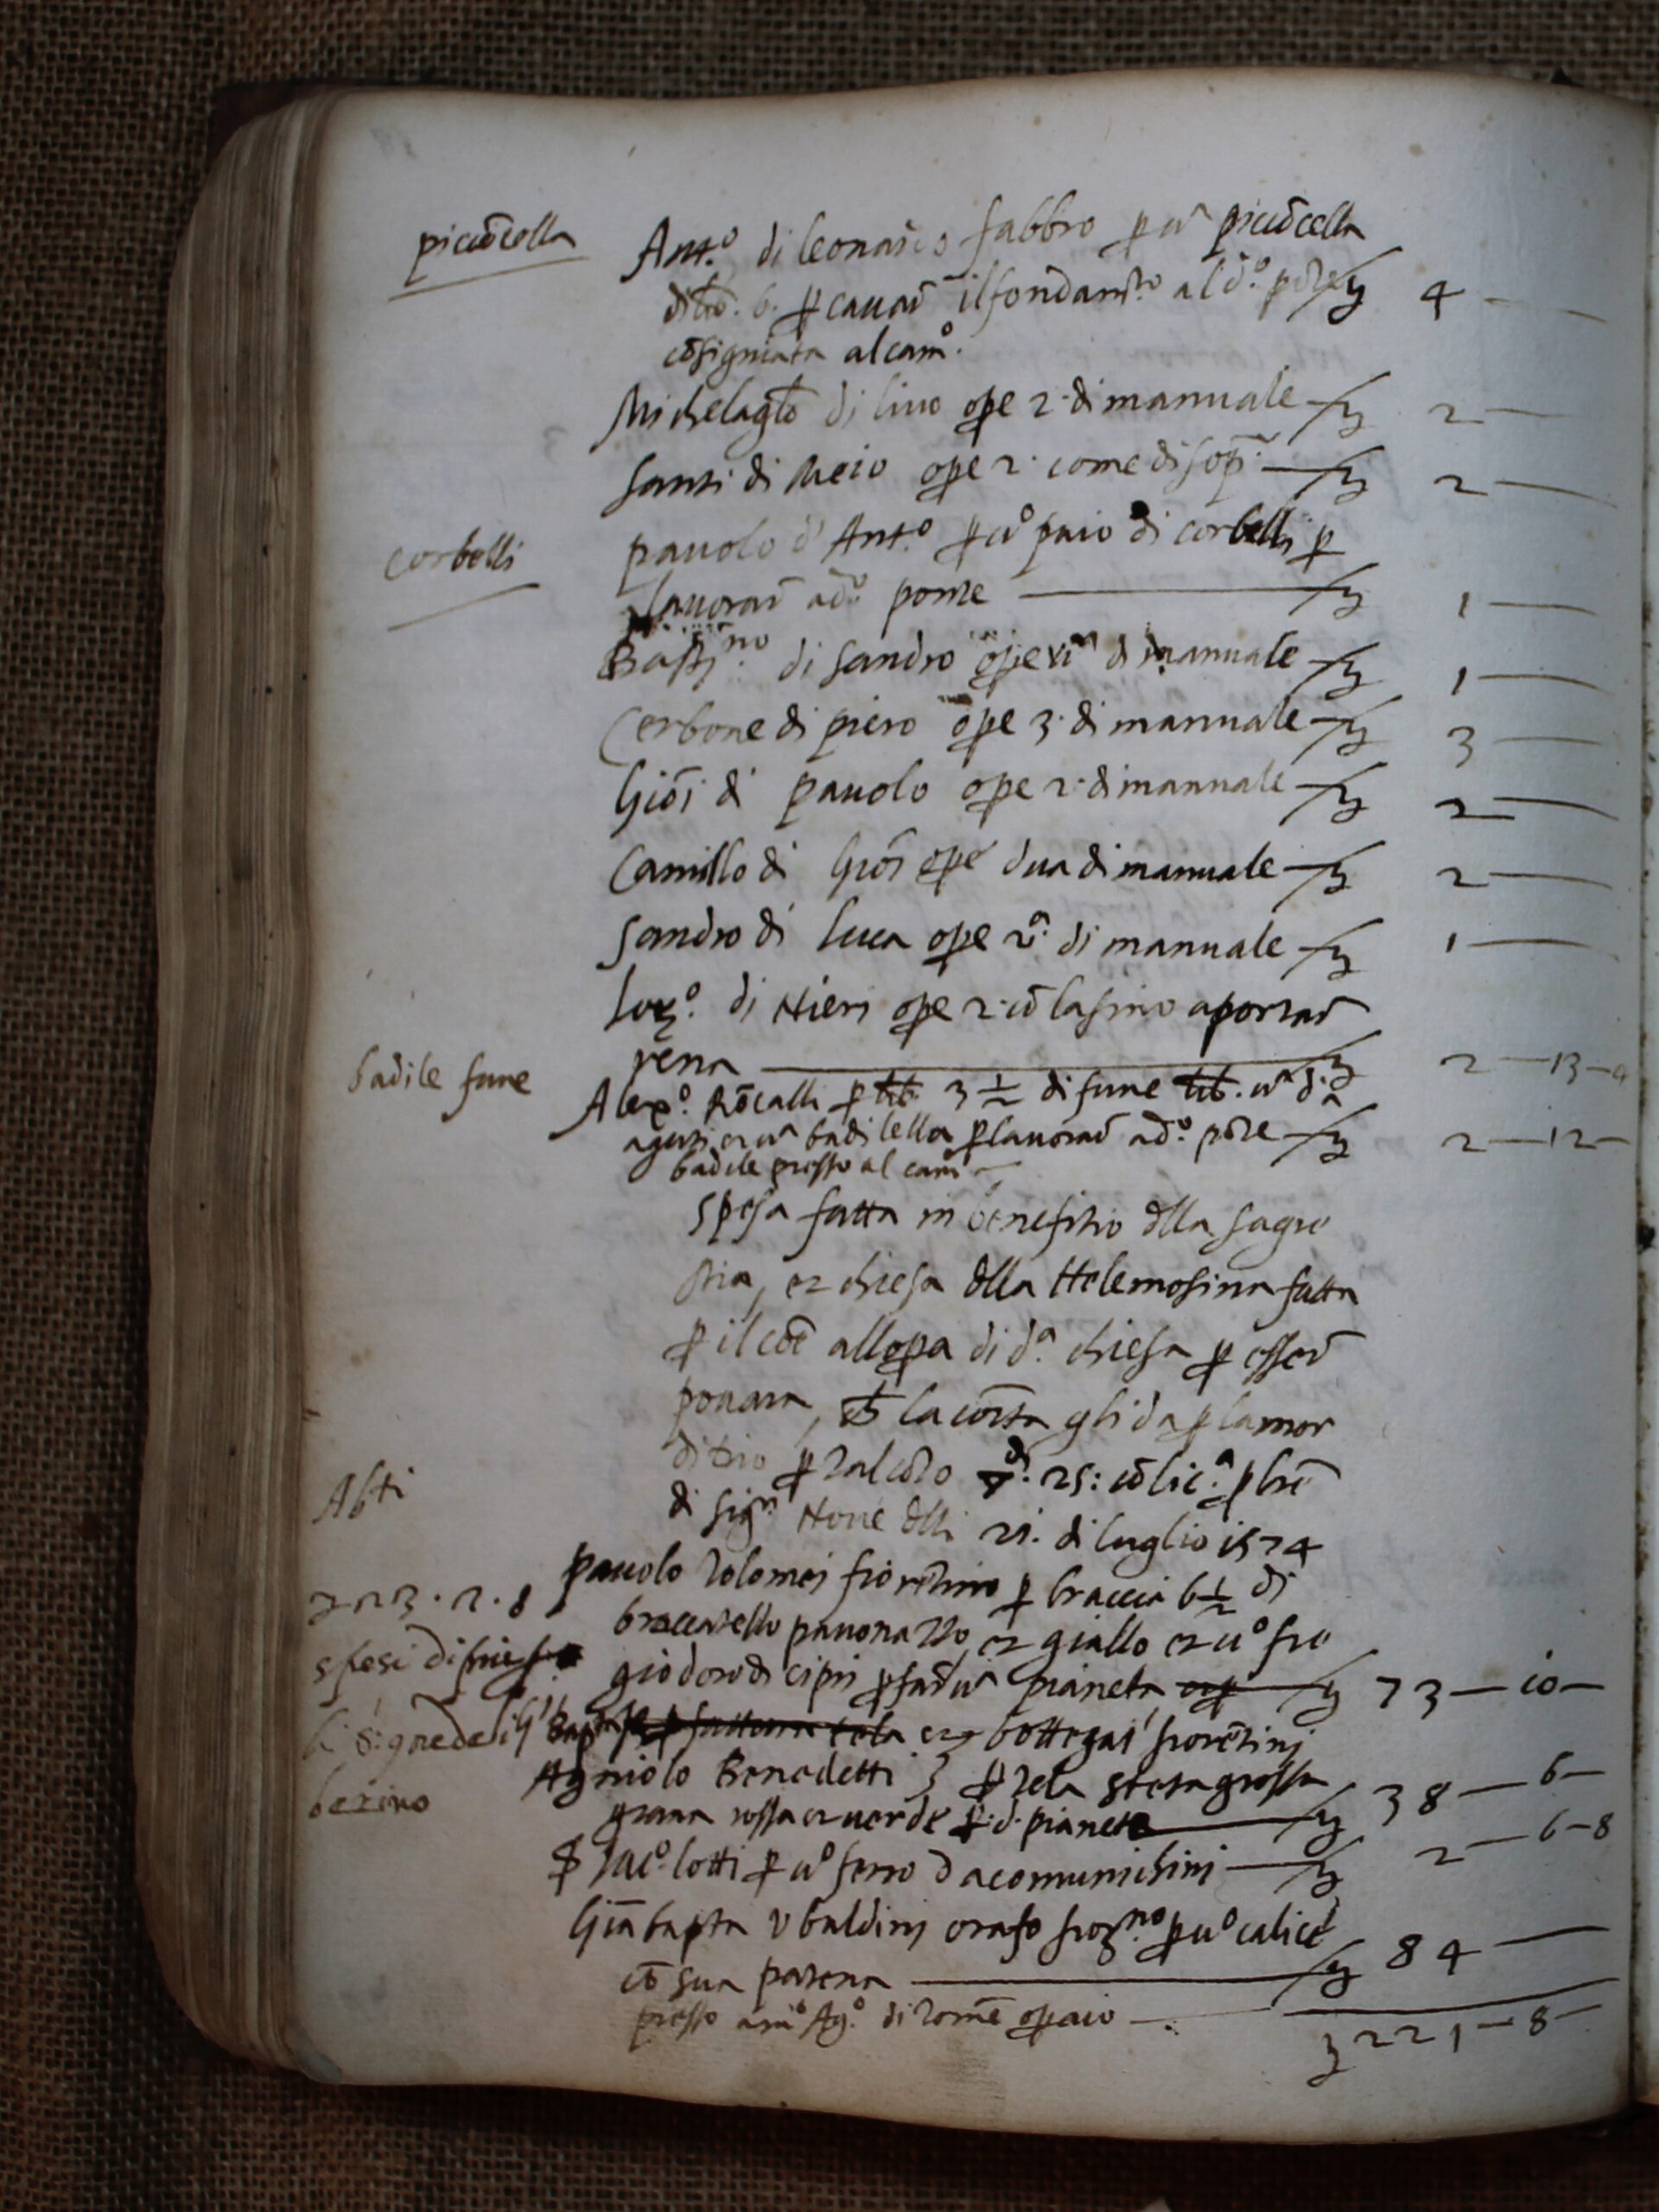 piccōcella
Ant.o di leonardo fabbro p uª piccōcella
di lb. 6. p cauar̄ il fondam.to al d.o pōte ₰ 4 —
cōsigniata al cam.o
Michelag.lo di lino ope 2. di manuale ₰ 2 —
Santi di Meio ope 2. come di sop.ª ₰ 2 —
corbelli
pauolo d' Ant.o p uº paio di corbelli p
lauorar̄ a d.o ponte ₰ 1 —
Bast.no di Sandro ope uª di manuale ₰ 1 —
Cerbone di piero ope 3. di manuale ₰ 3 —
Giōi di pauolo ope 2. di manuale ₰ 2 —
Camillo di Giōi ope dua di manuale ₰ 2 —
Sandro di Luca ope uª di manuale ₰ 1 —
Lor.o di Nieri ope 2. cō lasino a portar̄
rena ₰ 2 — 13 — 4
badile fune
Alex.o Rōcalli p lb. 3 ½ di fune lb. uª d'
aguti et uª badilella p lauorar̄ a d.o pōte ₰ 2 — 12 —
badile presso al cam.o
Spesa fatta in benefitio dlla sagre
stia, et chiesa dlla Helemosina fatta
p il cōe allopa di d.ª chiesa p esser̄
pouara, la gli da p lamor
di dio p tal cōto 25: cō lic.ª p lr̄e
di Sig.ri Noue dlli 21. di luglio 1574
Abti
pauolo Tolomei fiorētino p braccia 6 ½ di
223 . 2 . 8
broccatello pauonazzo, et giallo et uº fre
spesi di
gio doro di cipri p far uª pianeta ₰ 73 — 10 —
et bottegai fiorētini
Agniolo Benedetti } p tela stetta grossa ₰ 38 — 6 —
grana rossa et uerde p. d. pianeta
Jac.o lotti p uº ferro da comunichini ₰ 2 — 6 — 8
Giābapta Vbaldini orafo fior.no p uº calice
cō sua patena ₰ 84 —
presso a m.o Ag.o di Tomē opaio
₰ 221 — 8 —